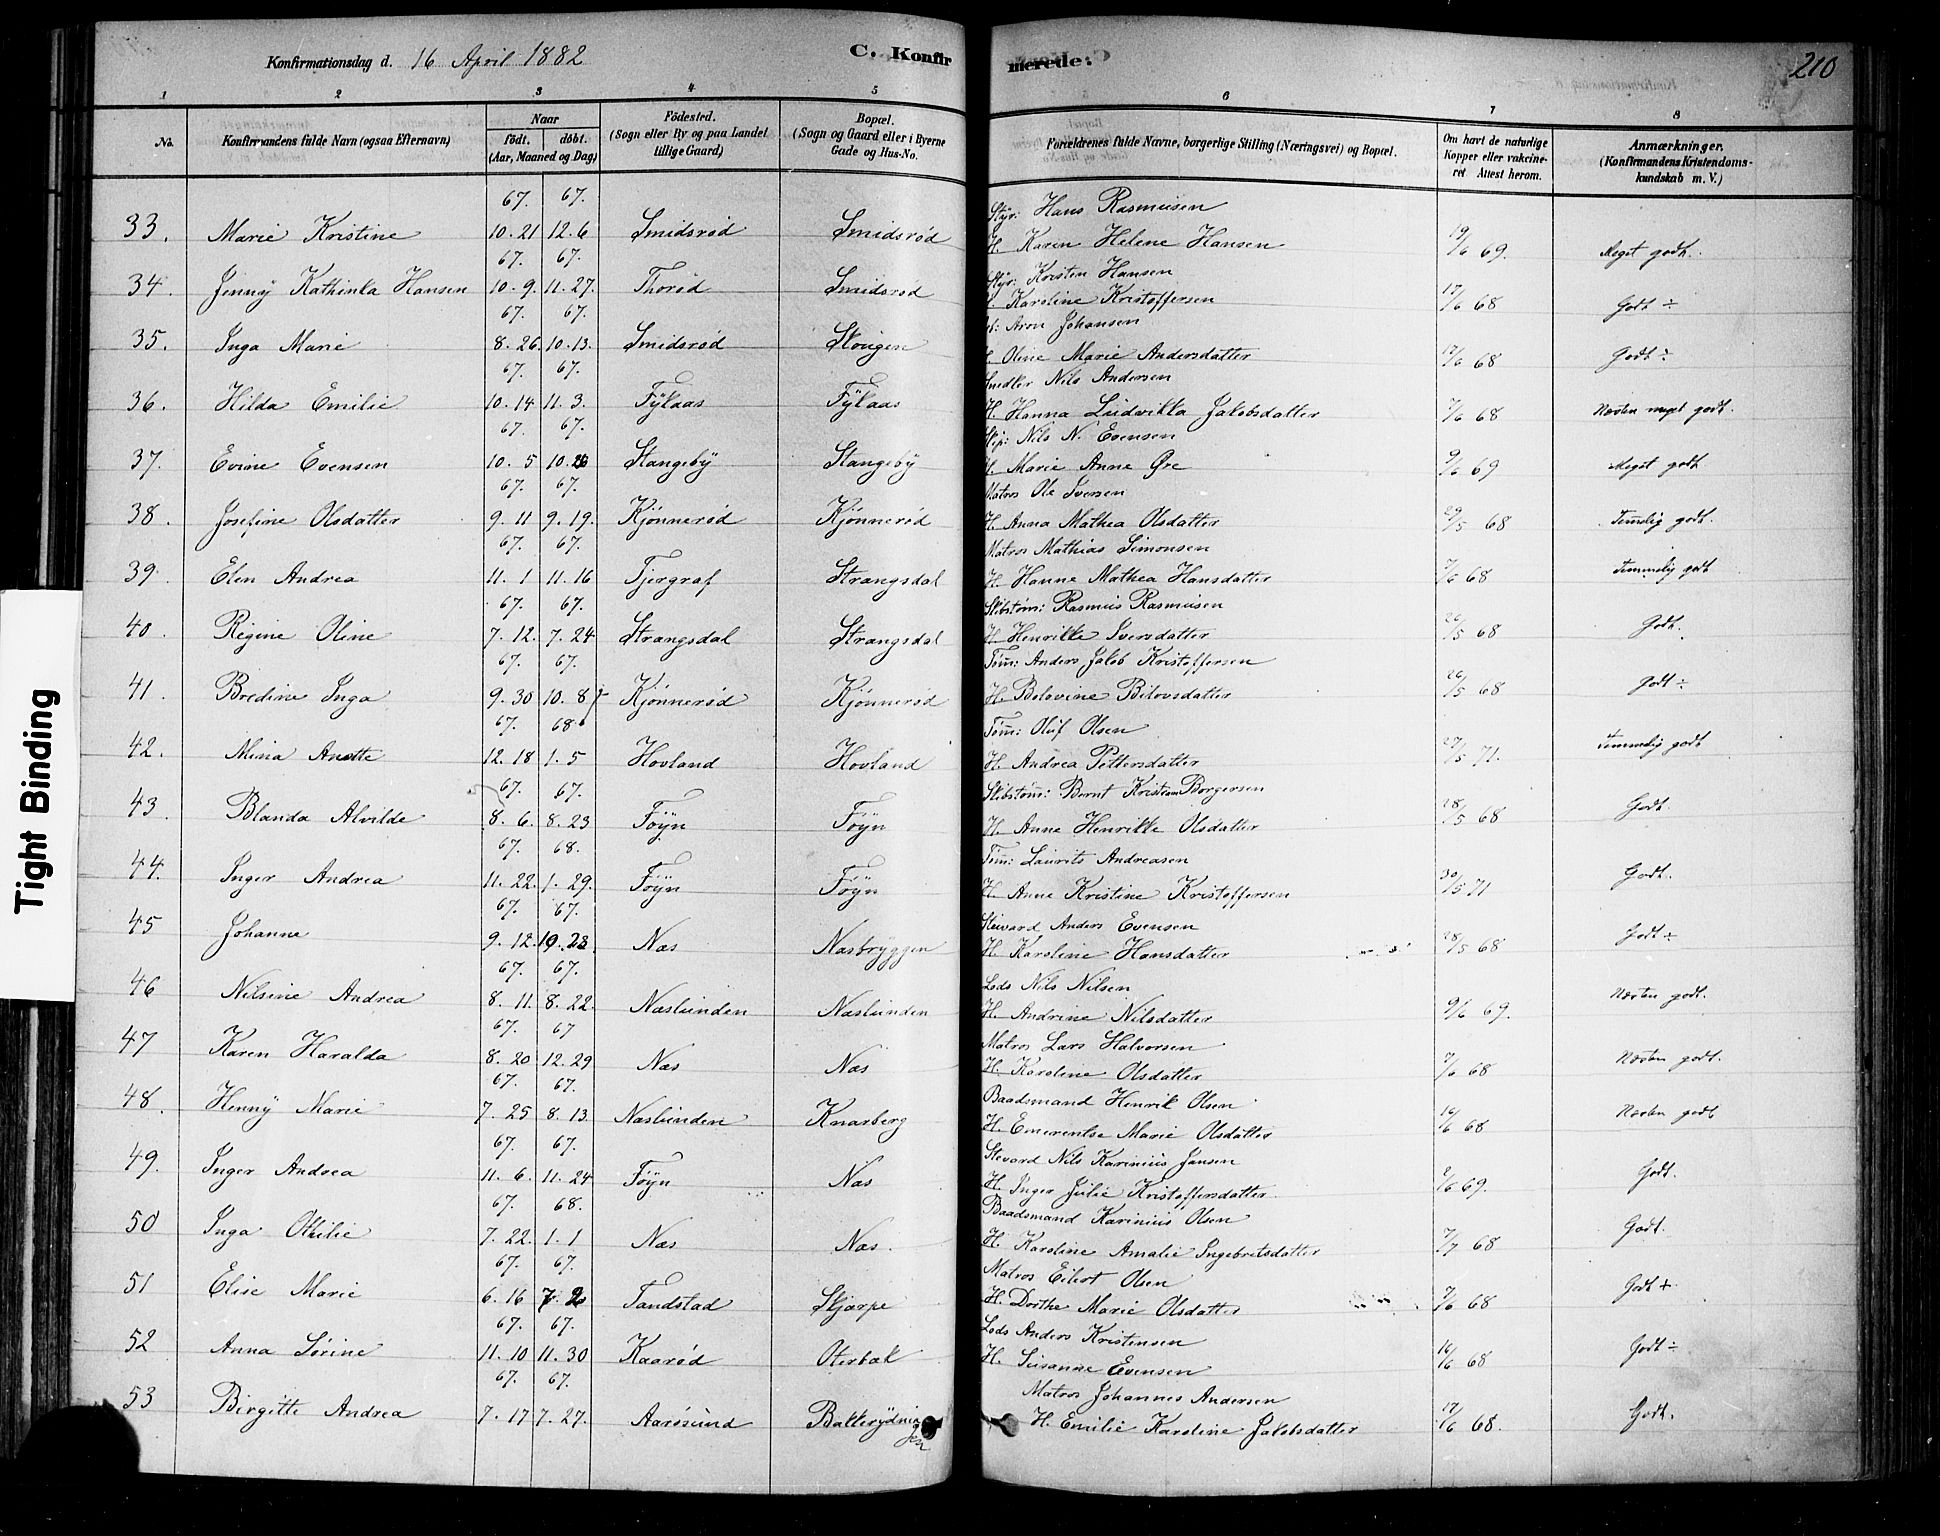 Konfirmationsdag d. 16 April 1882 C. Konfirmerede. 210
1 2 3 4 5 6 7 8
No. Konfirmandens fulde Navn (ogsaa Efternavn) Naar født. døbt. (Aar, Maaned og Dag) Fødested. (Sogn eller By og paa Landet tillige Gaard) Bopæl. (Sogn og Gaard eller i Byerne Gade og Hus-No. Forældrenes fulde Navne, borgerlige Stilling (Næringsvei) og Bopæl. Om havt de naturlige Kopper eller vakcineret Attest herom. Anmærkninger. (Konfirmandens Kristendomskundskab m. V.)
67. 67. Styr: Hans Rasmusen
33. Marie Kristine 10.21 12.6 Smidsrød Smidsrød H. Karen Helene Hansen 19/6 69. Meget godt.
67. 67. Styr: Kristen Hansen
34. Jenny Kathinka Hansen 10.9. 11.27. Thorød Smidsrød H. Karoline Kristoffersen 17/6 68 Godt ÷
67. 67. Aron Johansen
35. Inga Marie 8.26. 10.13. Smidsrød Skougen H. Oline Marie Andersdatter 17/6 68 Godt ÷
67. 67. Snedker Nils Andersen
36. Hilda Emilie 10.14 11.3. Fylaas Fylaas H. Hanna Ludvikka Jakobsdatter 7/6 68 Næsten meget godt.
67. 67. Skip: Nils N. Evensen
37. Evine Evensen 10.5 10.26 Stangeby Stangeby H. Marie Anne Øre 9/6 69 Meget godt
67. 67. Matros Ole Iversen
38. Josefine Olsdatter 9.11 9.19. Kjønnerød Kjønnerød H. Anna Mathea Olsdatter 29/5 68 Temmelig godt.
67. 67. Matros Mathias Simonsen
39. Elen Andrea 11.1 11.16 Tjergraf Strangsdal H. Hanne Mathea Hansdatter 7/6 68 Temmelig godt
67. 67. Skibstøm: Rasmus Rasmusen
40. Regine Oline 7.12. 7.24 Strangsdal Strangsdal H. Henrikke Iversdatter 26/5 68 Godt.
67. 67. Tøm: Anders Jakob Kristoffersen
41. Bredine Inga 9.30 10.8 Kjønnerød Kjønnerød H. Bolovine Bilovsdatter 26/5 68 Godt ÷
67. 68. Tøm: Oluf Olsen
42. Mina Anette 12.18 1.5 Hovland Hovland H. Andrea Pettersdatter 27/5 71. Temmelig godt
67. 67. Skibstøm: Bernt Kristian Borgersen
43 Blanda Alvilde 8.6. 8.23 Føyn Føyn H. Anne Henrikke Olsdatter 28/5 68 Godt.
67. 68. Tøm: Laurits Andreasen
44. Inger Andrea 11.22. 1.29. Føyn Føyn H. Anne Kristine Kristoffersen 30/5 71 Godt.
67. 67. Steward Anders Evensen
45 Johanne 9.12. 10.23 Næs Næsbryggen H. Karoline Hansdatter 28/5 68 Godt ÷
67. 67. Lods Nils Nilsen
46 Nilsine Andrea 8.11. 8.22. Næslunden Næslunden H. Andrine Nilsdatter 9/6 69. Næsten godt.
67. 67 Matros Lars Halvorsen
47 Karen Haralda 8.20 12.29 Næs Næs H. Karoline Olsdatter 7/6 68 Næsten godt.
67. 67. Baadsmand Henrik Olsen
48. Henny Marie 7.25 8.13. Næslunden Knarberg H. Emerentse Marie Olsdatter 16/6 68 Næsten godt
67. 67. Stevard Nils Karinius Jansen
49. Inger Andrea 11.6. 11.24 Føyn Næs H. Inger Julie Kristoffersdatter. 2/6 69. Godt.
67. 68. Baadsmand Karinius Olsen
50 Inga Othilie 7.22. 1.1 Næs Næs. H. Karoline Amalie Ingebretsdatter 7/7 68 Godt.
67. 67. Matros Eilert Olsen
51 Elise Marie 6.16 7.2 Tandstad Skjærpe H. Dorthe Marie Olsdatter 7/6 68 Godt +
67. 67. Lods Anders Kristensen
52 Anna Sørine 11.10 11.30 Kaarød Oterbæk H. Susanne Evensen 16/6 68 Godt ÷
67. 67. Matros Johannes Andersen
53 Birgitte Andrea 7.17 7.27. Aarøsund H. Emilie Karoline Jakobsdatter 17/6 68. Godt.
Tight Binding